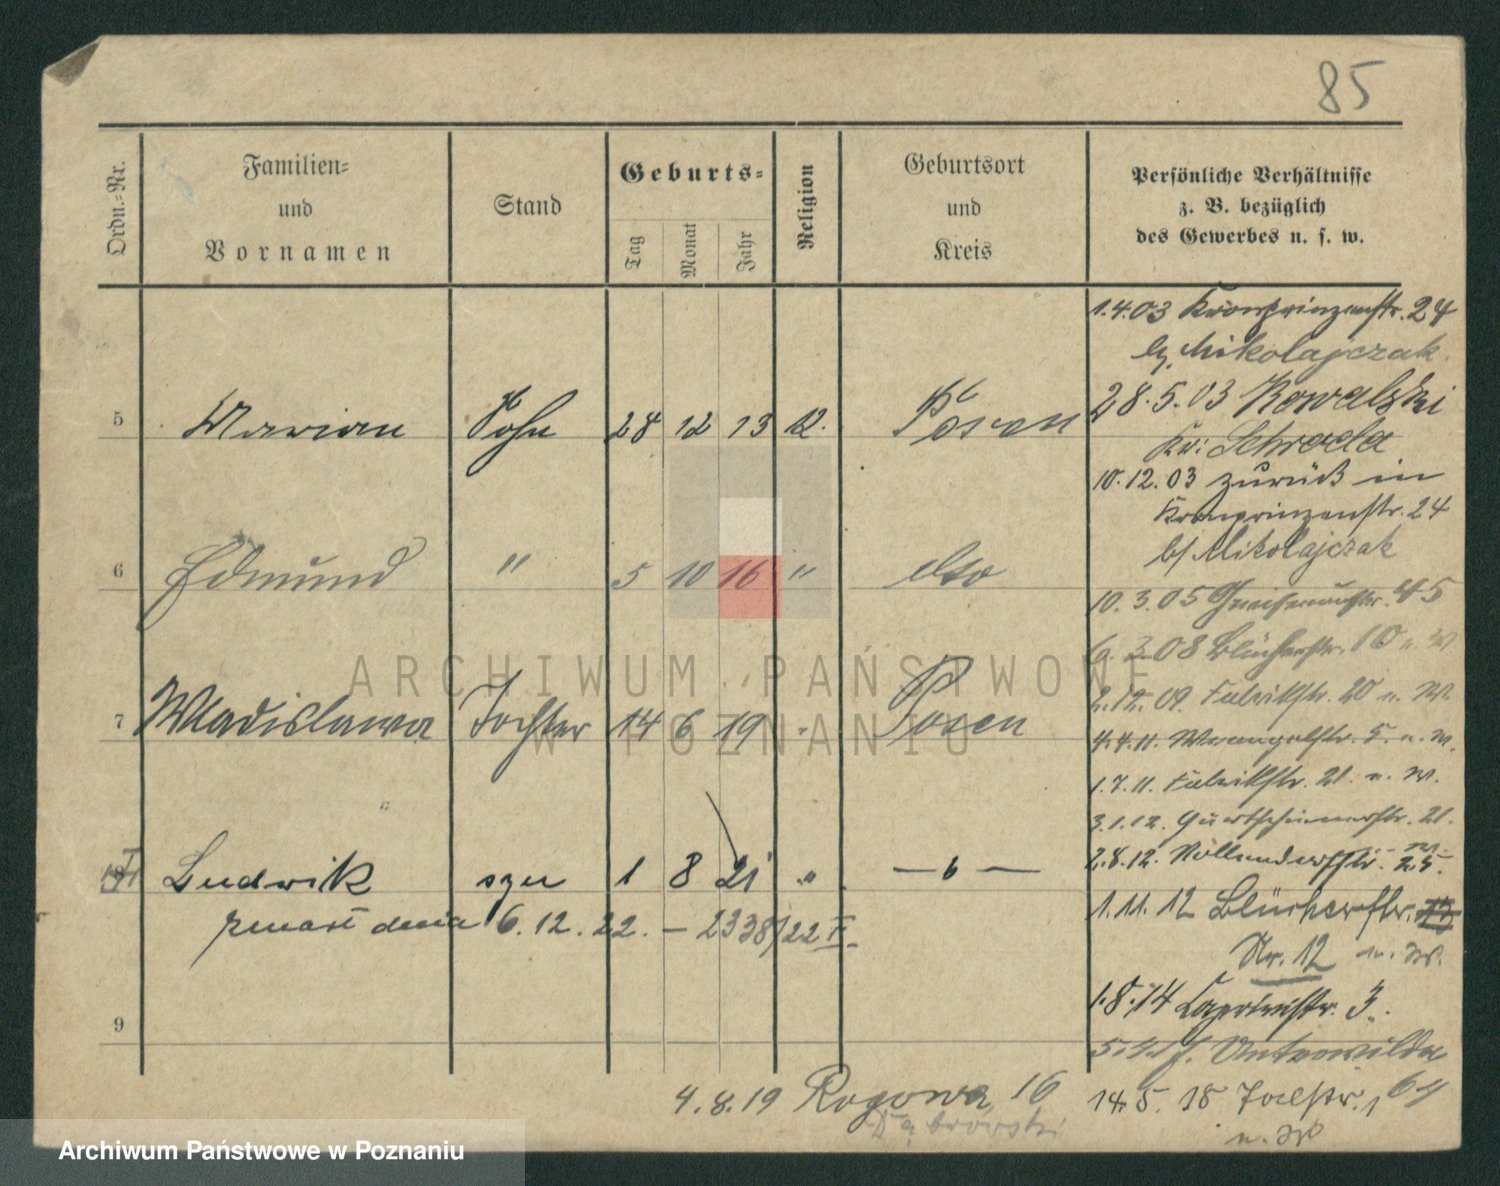 85
Ordn.-Nr.
Familien-
und
Vornamen
Stand
Geburts-
Tag
Monat
Jahr
Religion
Geburtsort
und
Kreis
Persönliche Verhältnisse
z. B. bezüglich
des Gewerbes u. s. w.
5 Marian Sohn 28 12 13 Posen
6 Edmund " 5 10 16 " dto
7 Wladislawa Tochter 14 6 19 Posen
8 Ludwik syn 1 8 21 " — " —
zmarł dnia 6.12.22. — 2338/22
9
1.4.03 Kronprinzenstr. 24
b/ Mikolajczak.
28.5.03 Kowalski
Kr: Schroda
10.12.03 zurück in
Kronprinzenstr. 24
b/ Mikolajczak
10.3.05 Gneisenaustr. 45
6.3.08 Blücherstr. 10 u. W
2.12.09. Fabrikstr. 20 u. W.
4.4.11. Wrangelstr. 5. u. W.
1.7.11. Fabrikstr. 21. u. W.
3.1.12. 21.
2.8.12. Nollendorfstr. 25.
1.11.12 Blücherstr.
Nr. 12 u. W.
1.8.14 3.
Unterwilda
14.5.18 64
u. W
4.8.19 Rogowa 16
Dąbrowski
ARCHIWUM PAŃSTWOWE
W POZNANIU
Archiwum Państwowe w Poznaniu